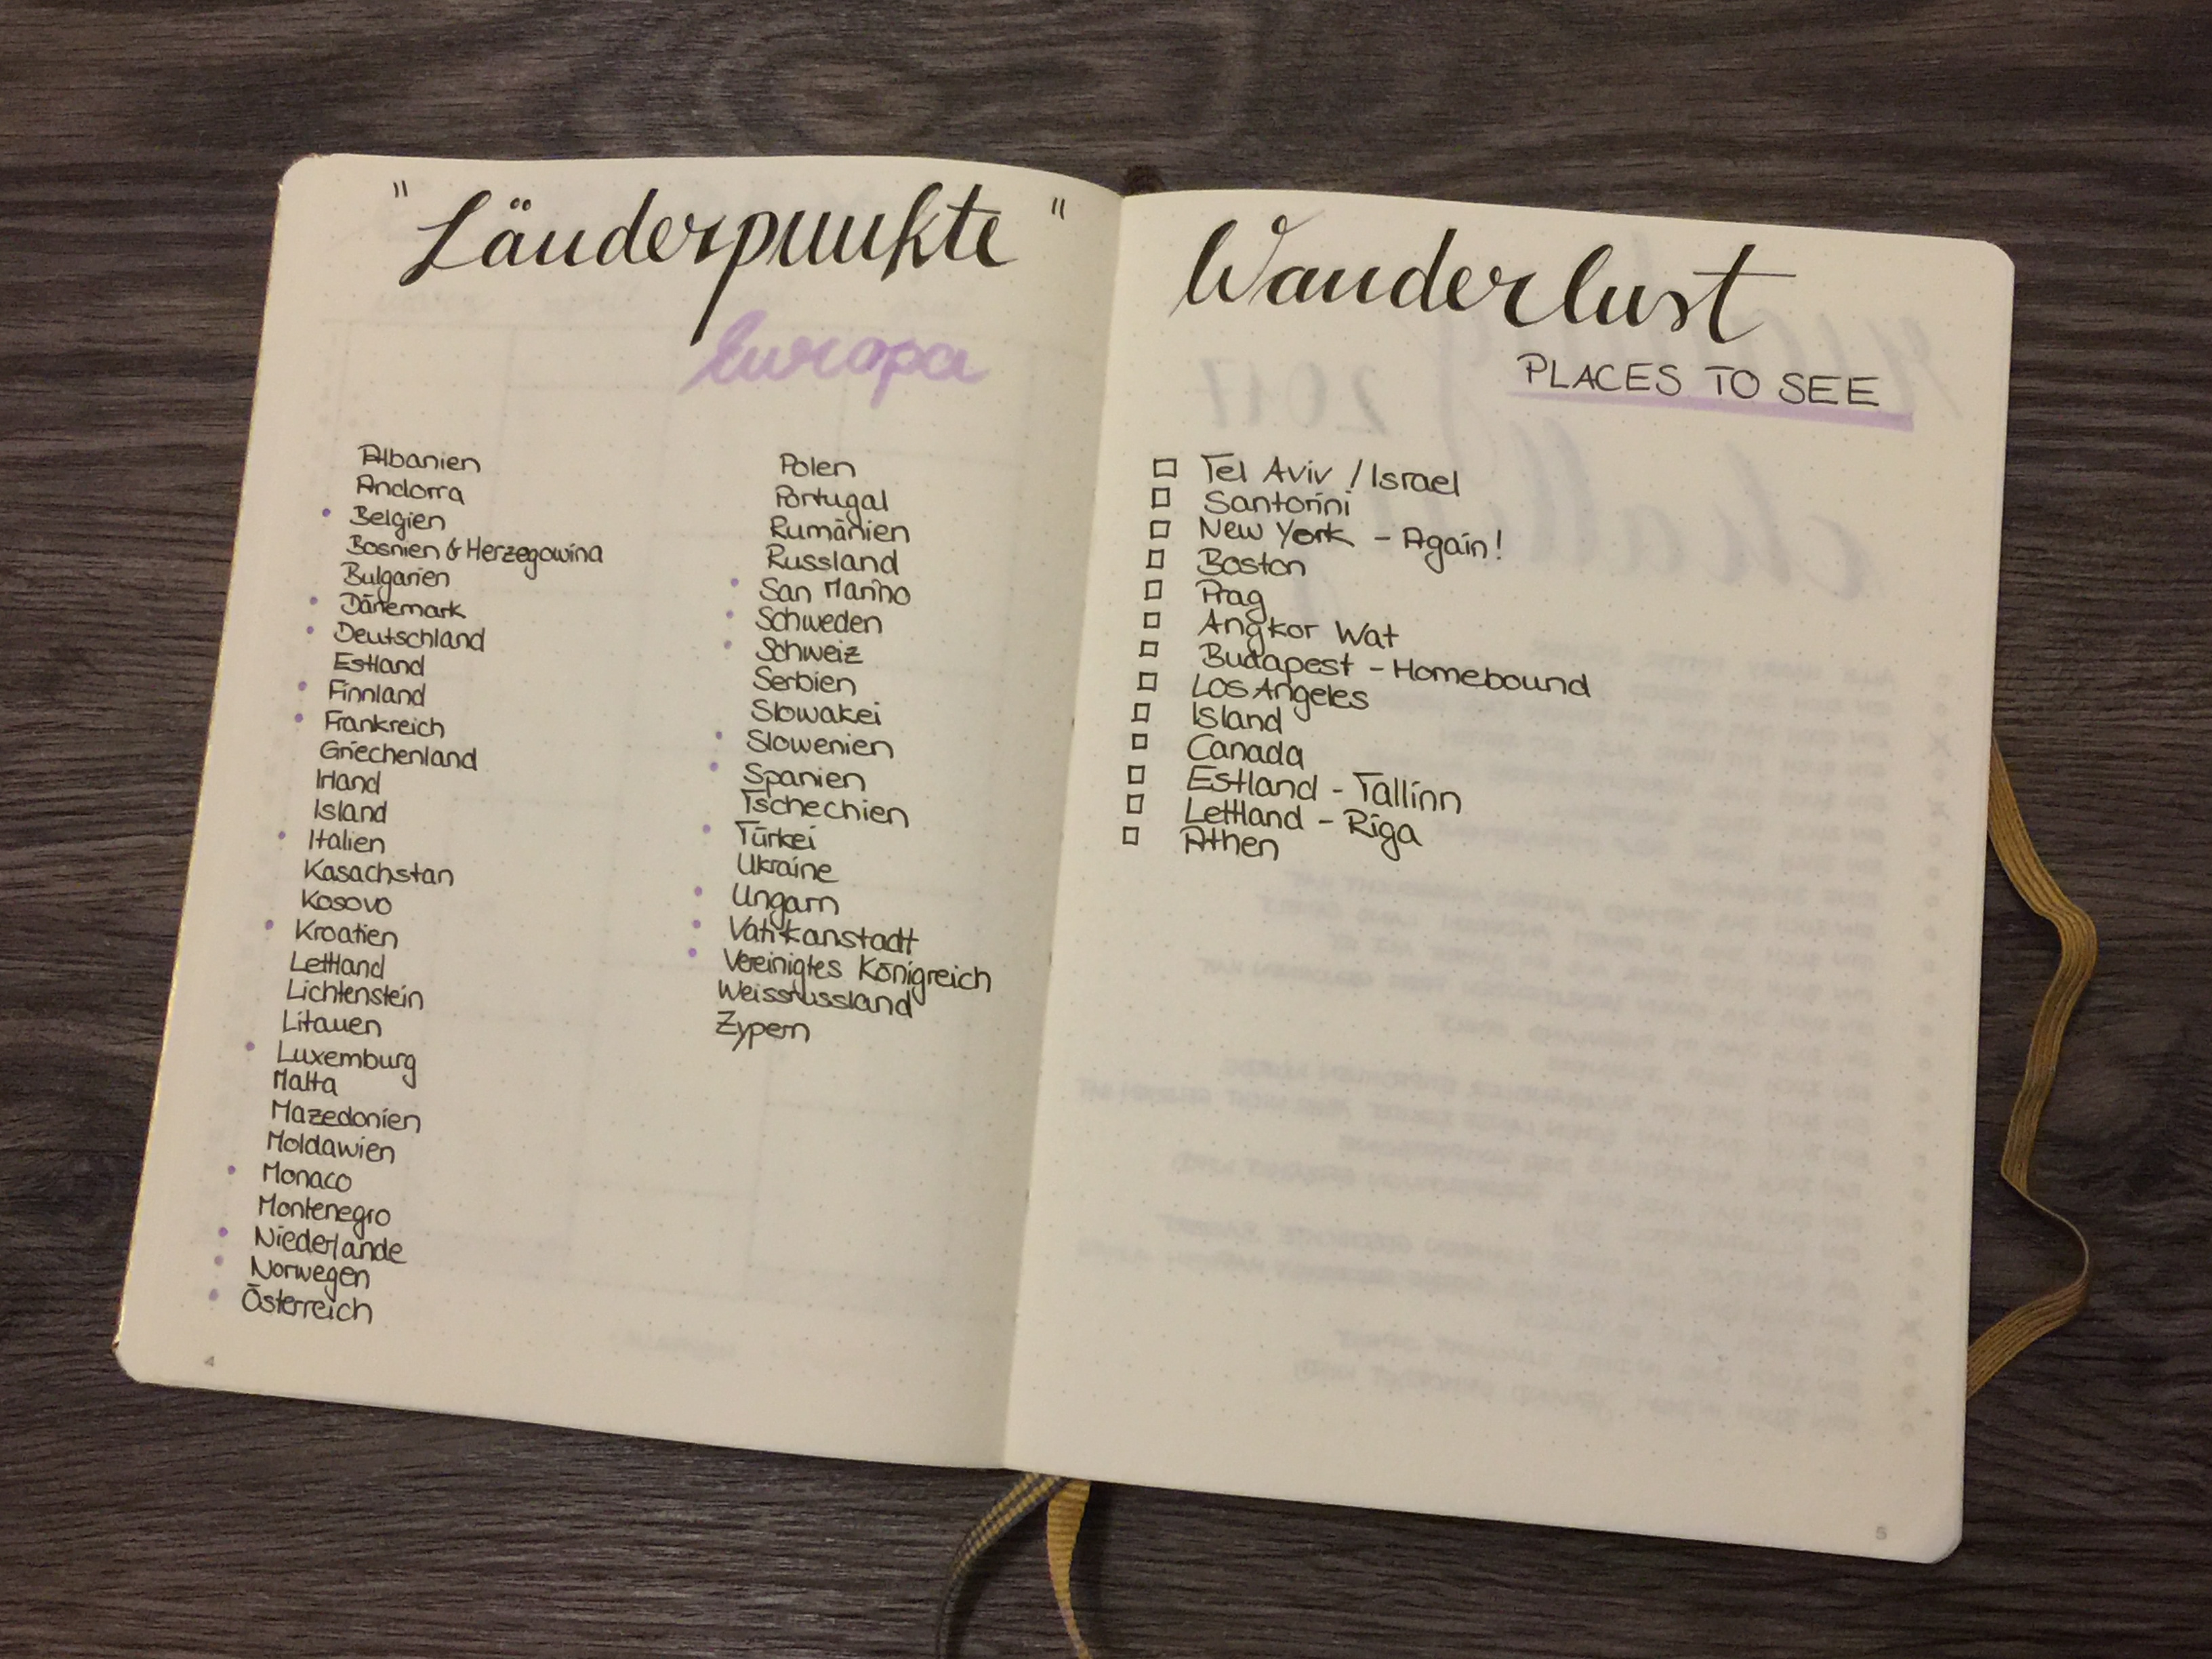 "Länderpunkte"
Europa
Albanien
Andorra
• Belgien
Bosnien & Herzegowina
Bulgarien
• Dänemark
• Deutschland
Estland
• Finnland
• Frankreich
Griechenland
Irland
Island
• Italien
Kasachstan
Kosovo
• Kroatien
Lettland
Lichtenstein
Litauen
• Luxemburg
Malta
Mazedonien
Moldawien
• Monaco
Montenegro
• Niederlande
• Norwegen
• Österreich
Polen
Portugal
Rumänien
Russland
• San Marino
• Schweden
• Schweiz
Serbien
Slowakei
• Slowenien
• Spanien
Tschechien
• Türkei
Ukraine
• Ungarn
• Vatikanstadt
• Vereinigtes Königreich
Weissrussland
Zypern
4
Wanderlust
PLACES TO SEE
□ Tel Aviv / Israel
□ Santorini
□ New York - Again!
□ Boston
□ Prag
□ Angkor Wat
□ Budapest - Homebound
□ Los Angeles
□ Island
□ Canada
□ Estland - Tallinn
□ Lettland - Riga
□ Athen
5